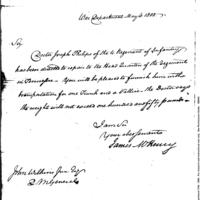 War Department May 3 1800
Sir,
Doctor Joseph Philips of the 4 Regiment of Infantry
has been directed to repair to the Head Quarters of the Regiment
in Tennessee. You will be pleased to furnish him with a
transportation for one Trunk and a Pallise. the Doctor says
the weight will not exceed one hundred and fifty pounds
I am Sir
Your obed servant
James McHenry
John Wilkins Jun Esq
Q M General